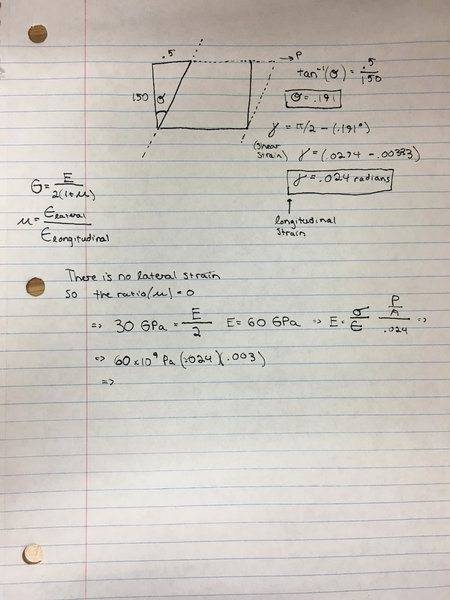 .5
→ P
150 θ
tan⁻¹(θ) = .5/150
θ = .191
γ = π/2 - (.191°)
(Shear Strain) γ = (.0274 - .00333)
γ = .024 radians
longitudinal
strain
G = E/2(1+μ)
μ = ϵlateral/ϵlongitudinal
There is no lateral strain
So the ratio(μ) = 0
=> 30 GPa = E/2 E = 60 GPa => E = σ/ϵ P/A/.024 =>
=> 60 x 10⁹ Pa (.024)(.003)
=>